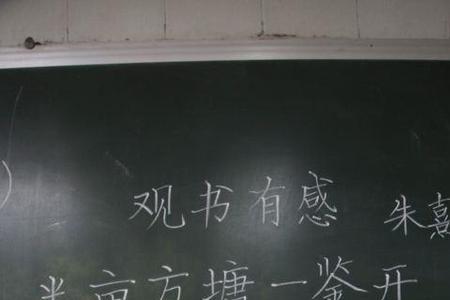 观书有感 朱熹
半亩方塘一鉴开